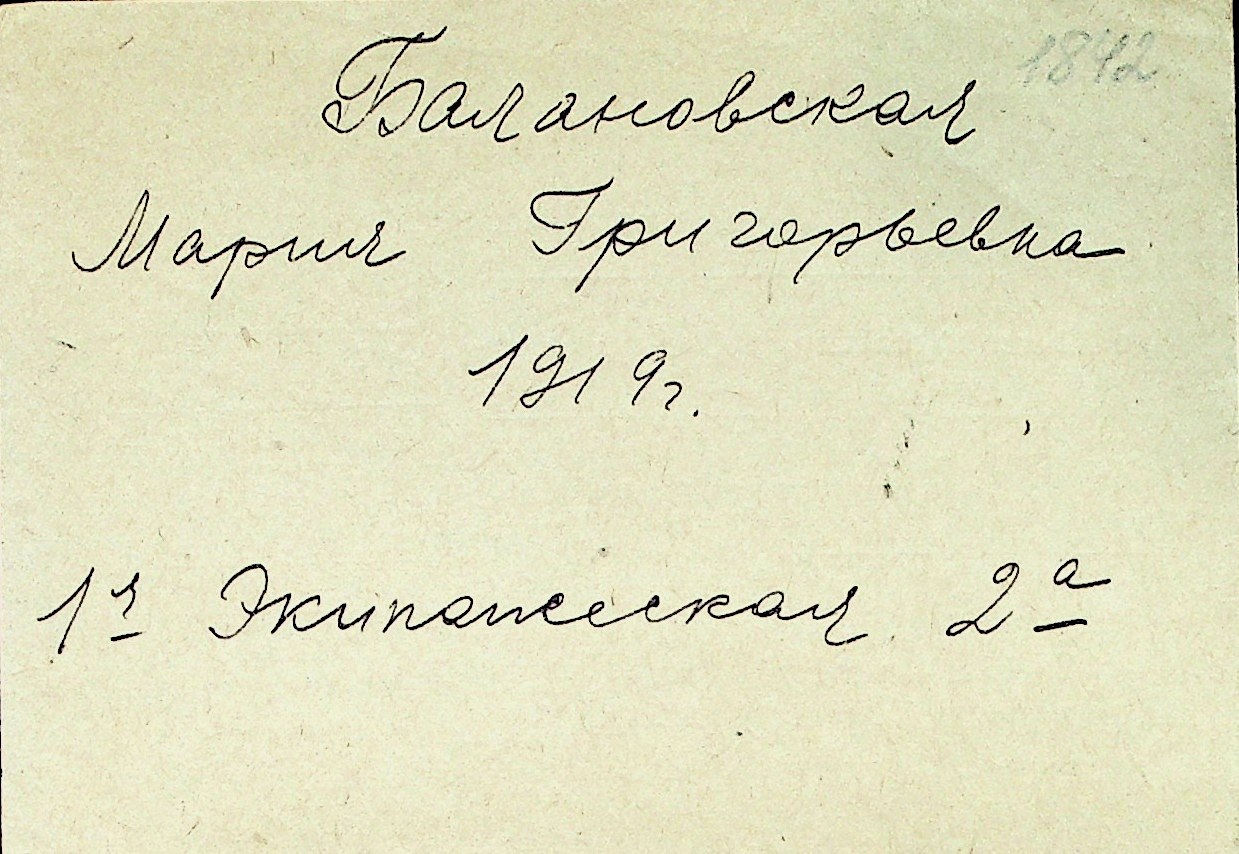 1842
Балановская
Мария Григорьевна
1919 г.
1я Экипажеская 2а